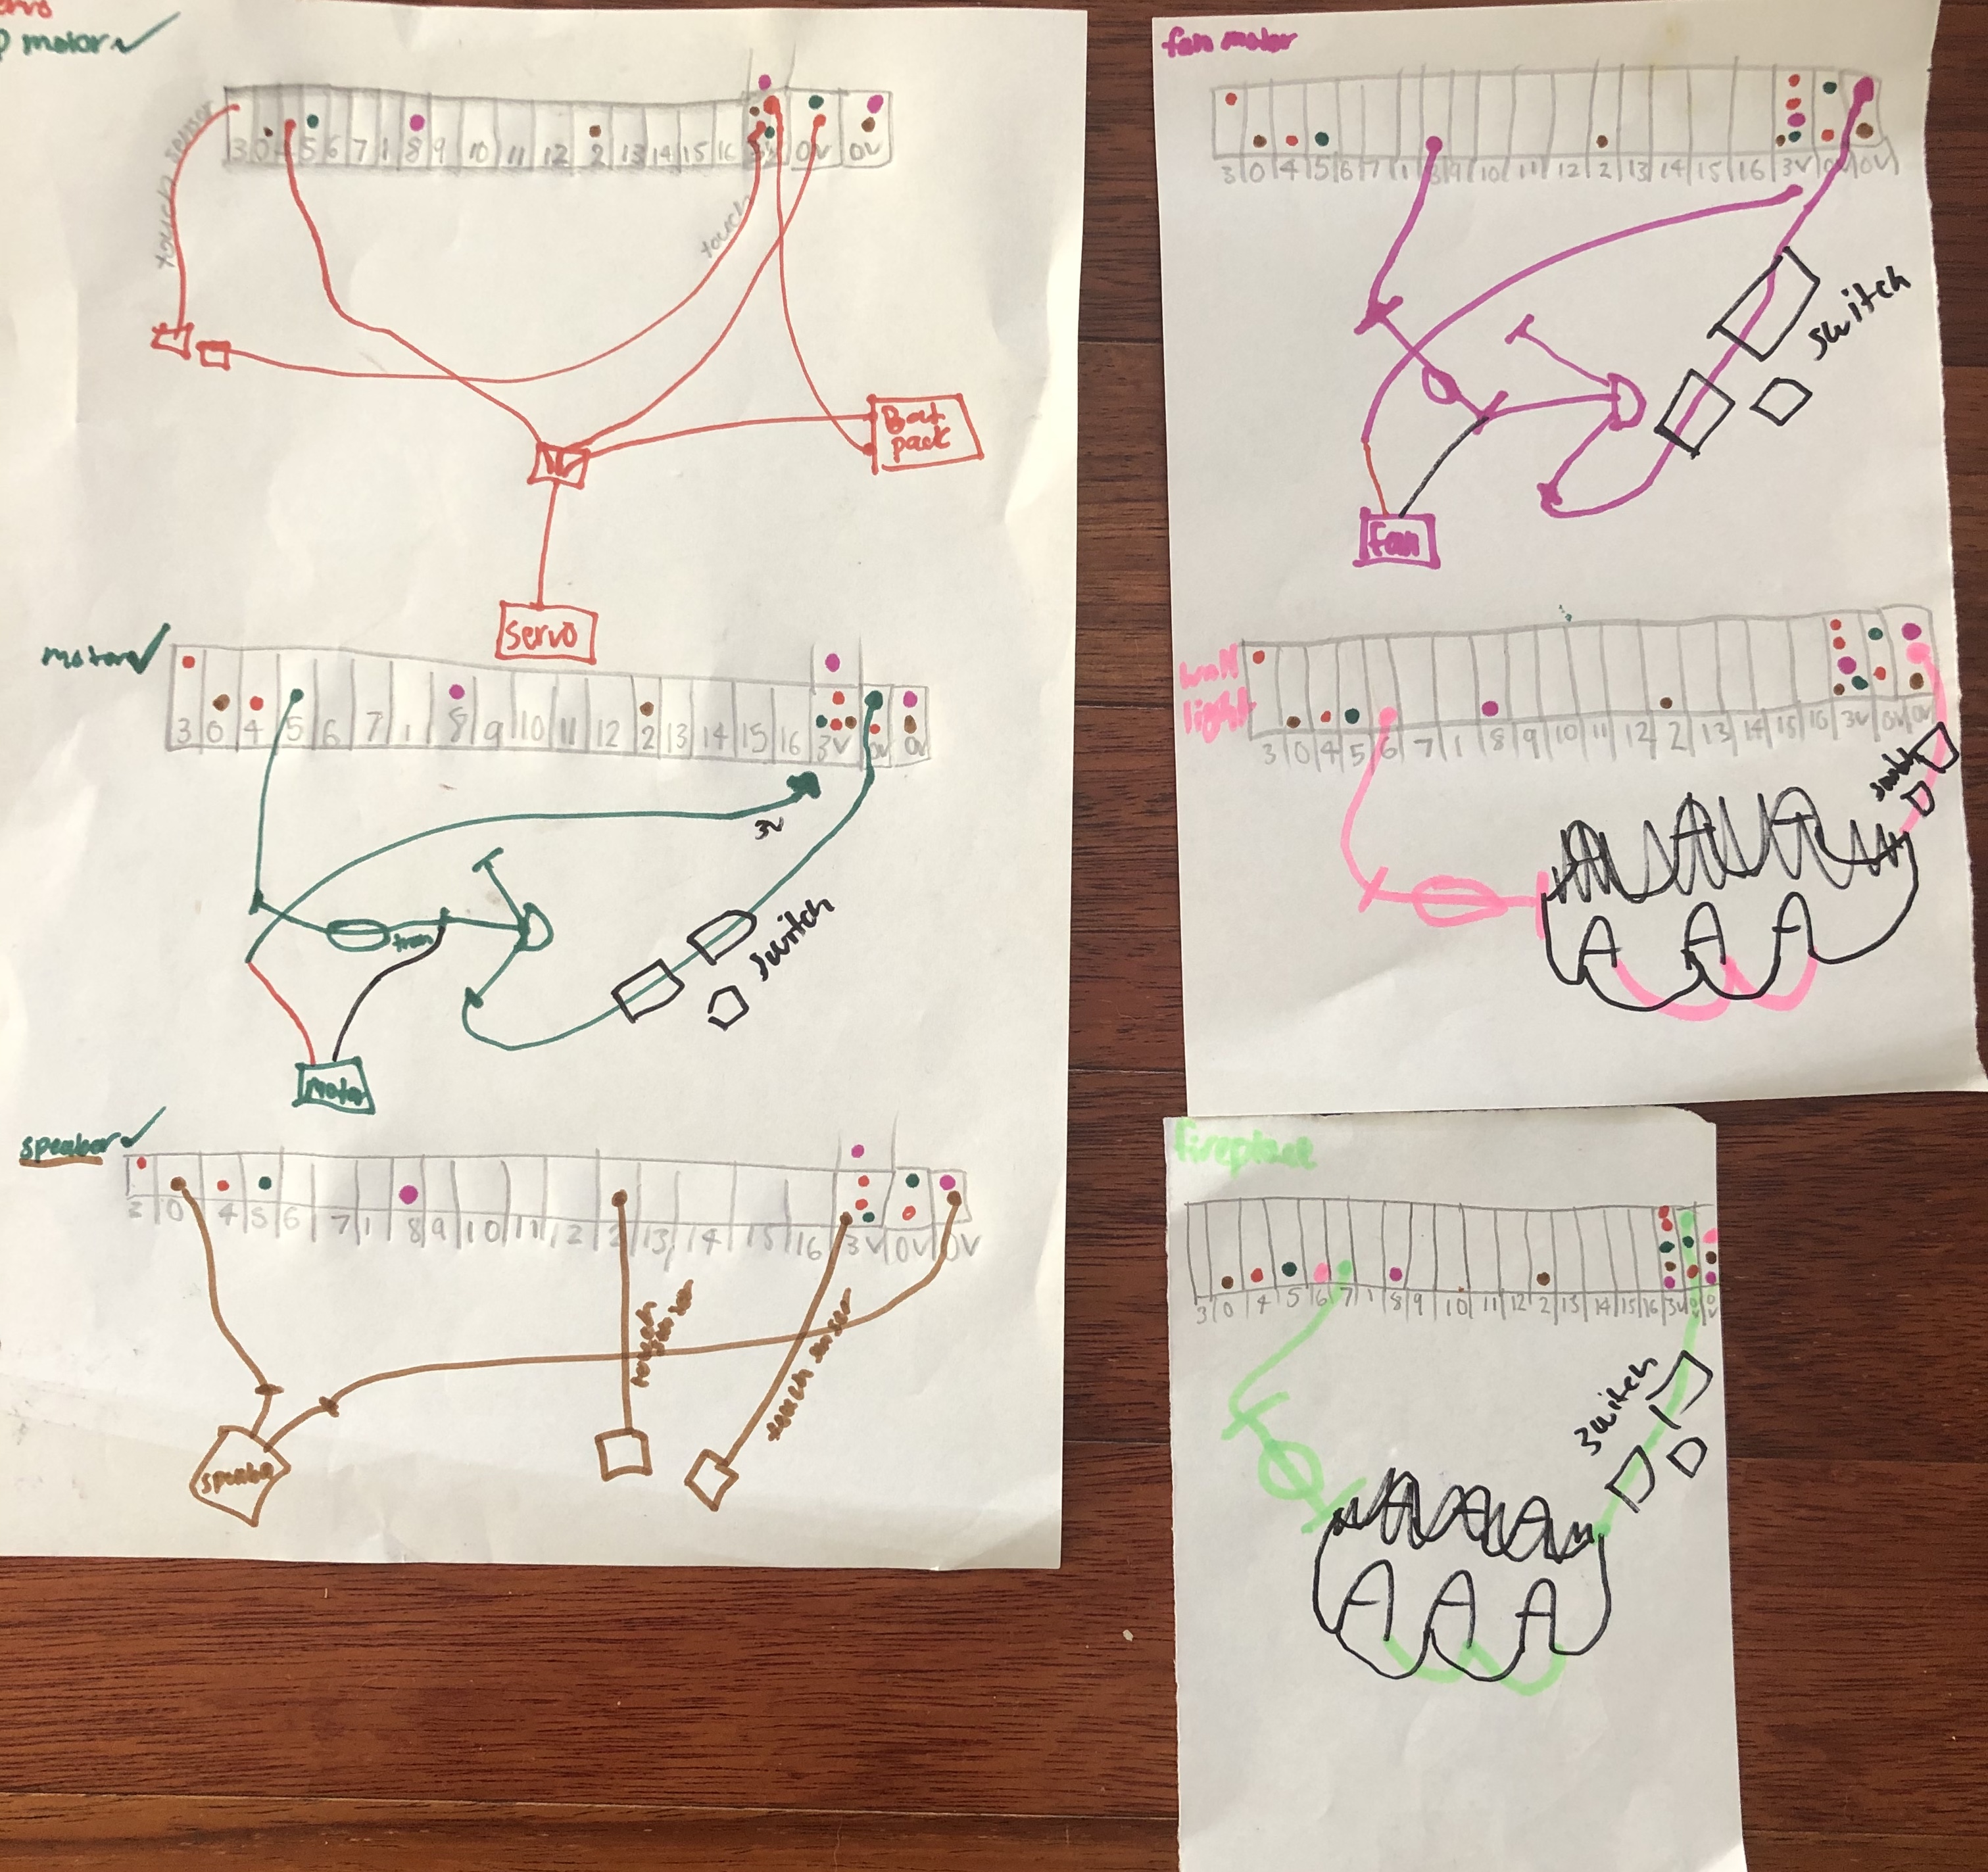 servo
motor
touch sensor
3 0 4 5 6 7 1 8 9 10 11 12 2 13 14 15 16 3V 0V 0V
touch
Bat
pack
servo
motor
3 0 4 5 6 7 1 8 9 10 11 12 2 13 14 15 16 3V 0V 0V
3V
tran
switch
Motor
speaker
3 0 4 5 6 7 1 8 9 10 11 12 2 13 14 15 16 3V 0V 0V
touch
sensor
touch sensor
speaker
fan motor
3 0 4 5 6 7 1 8 9 10 11 12 2 13 14 15 16 3V 0V 0V
switch
fan
wall
light
3 0 4 5 6 7 1 8 9 10 11 12 2 13 14 15 16 3V 0V 0V
switch
A A A
fireplace
3 0 4 5 6 7 1 8 9 10 11 12 2 13 14 15 16 3V 0V 0V
switch
A A A